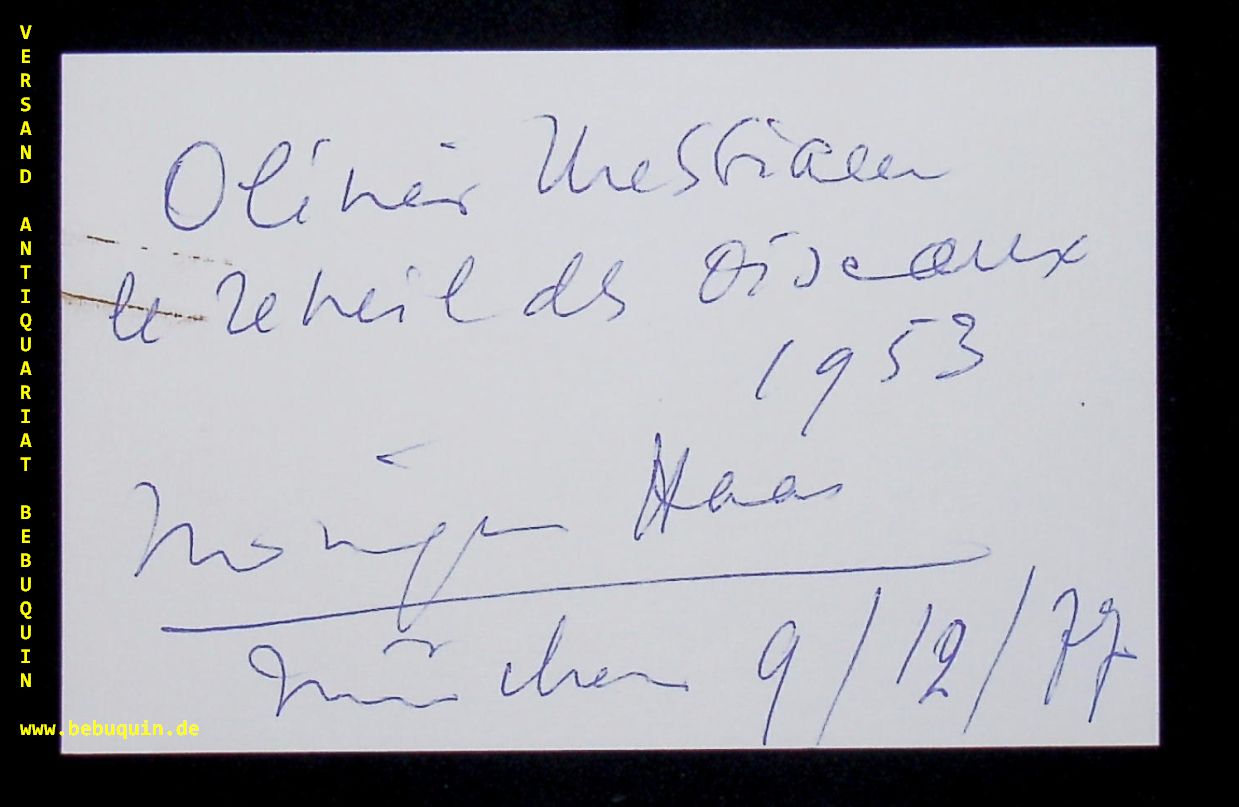 VERSAND ANTIQUARIAT BEBUQUIN
Olivier Messiaen
le Reveil des Oiseaux
1953
Monique Haas
München 9/12/77
www.bebuquin.de